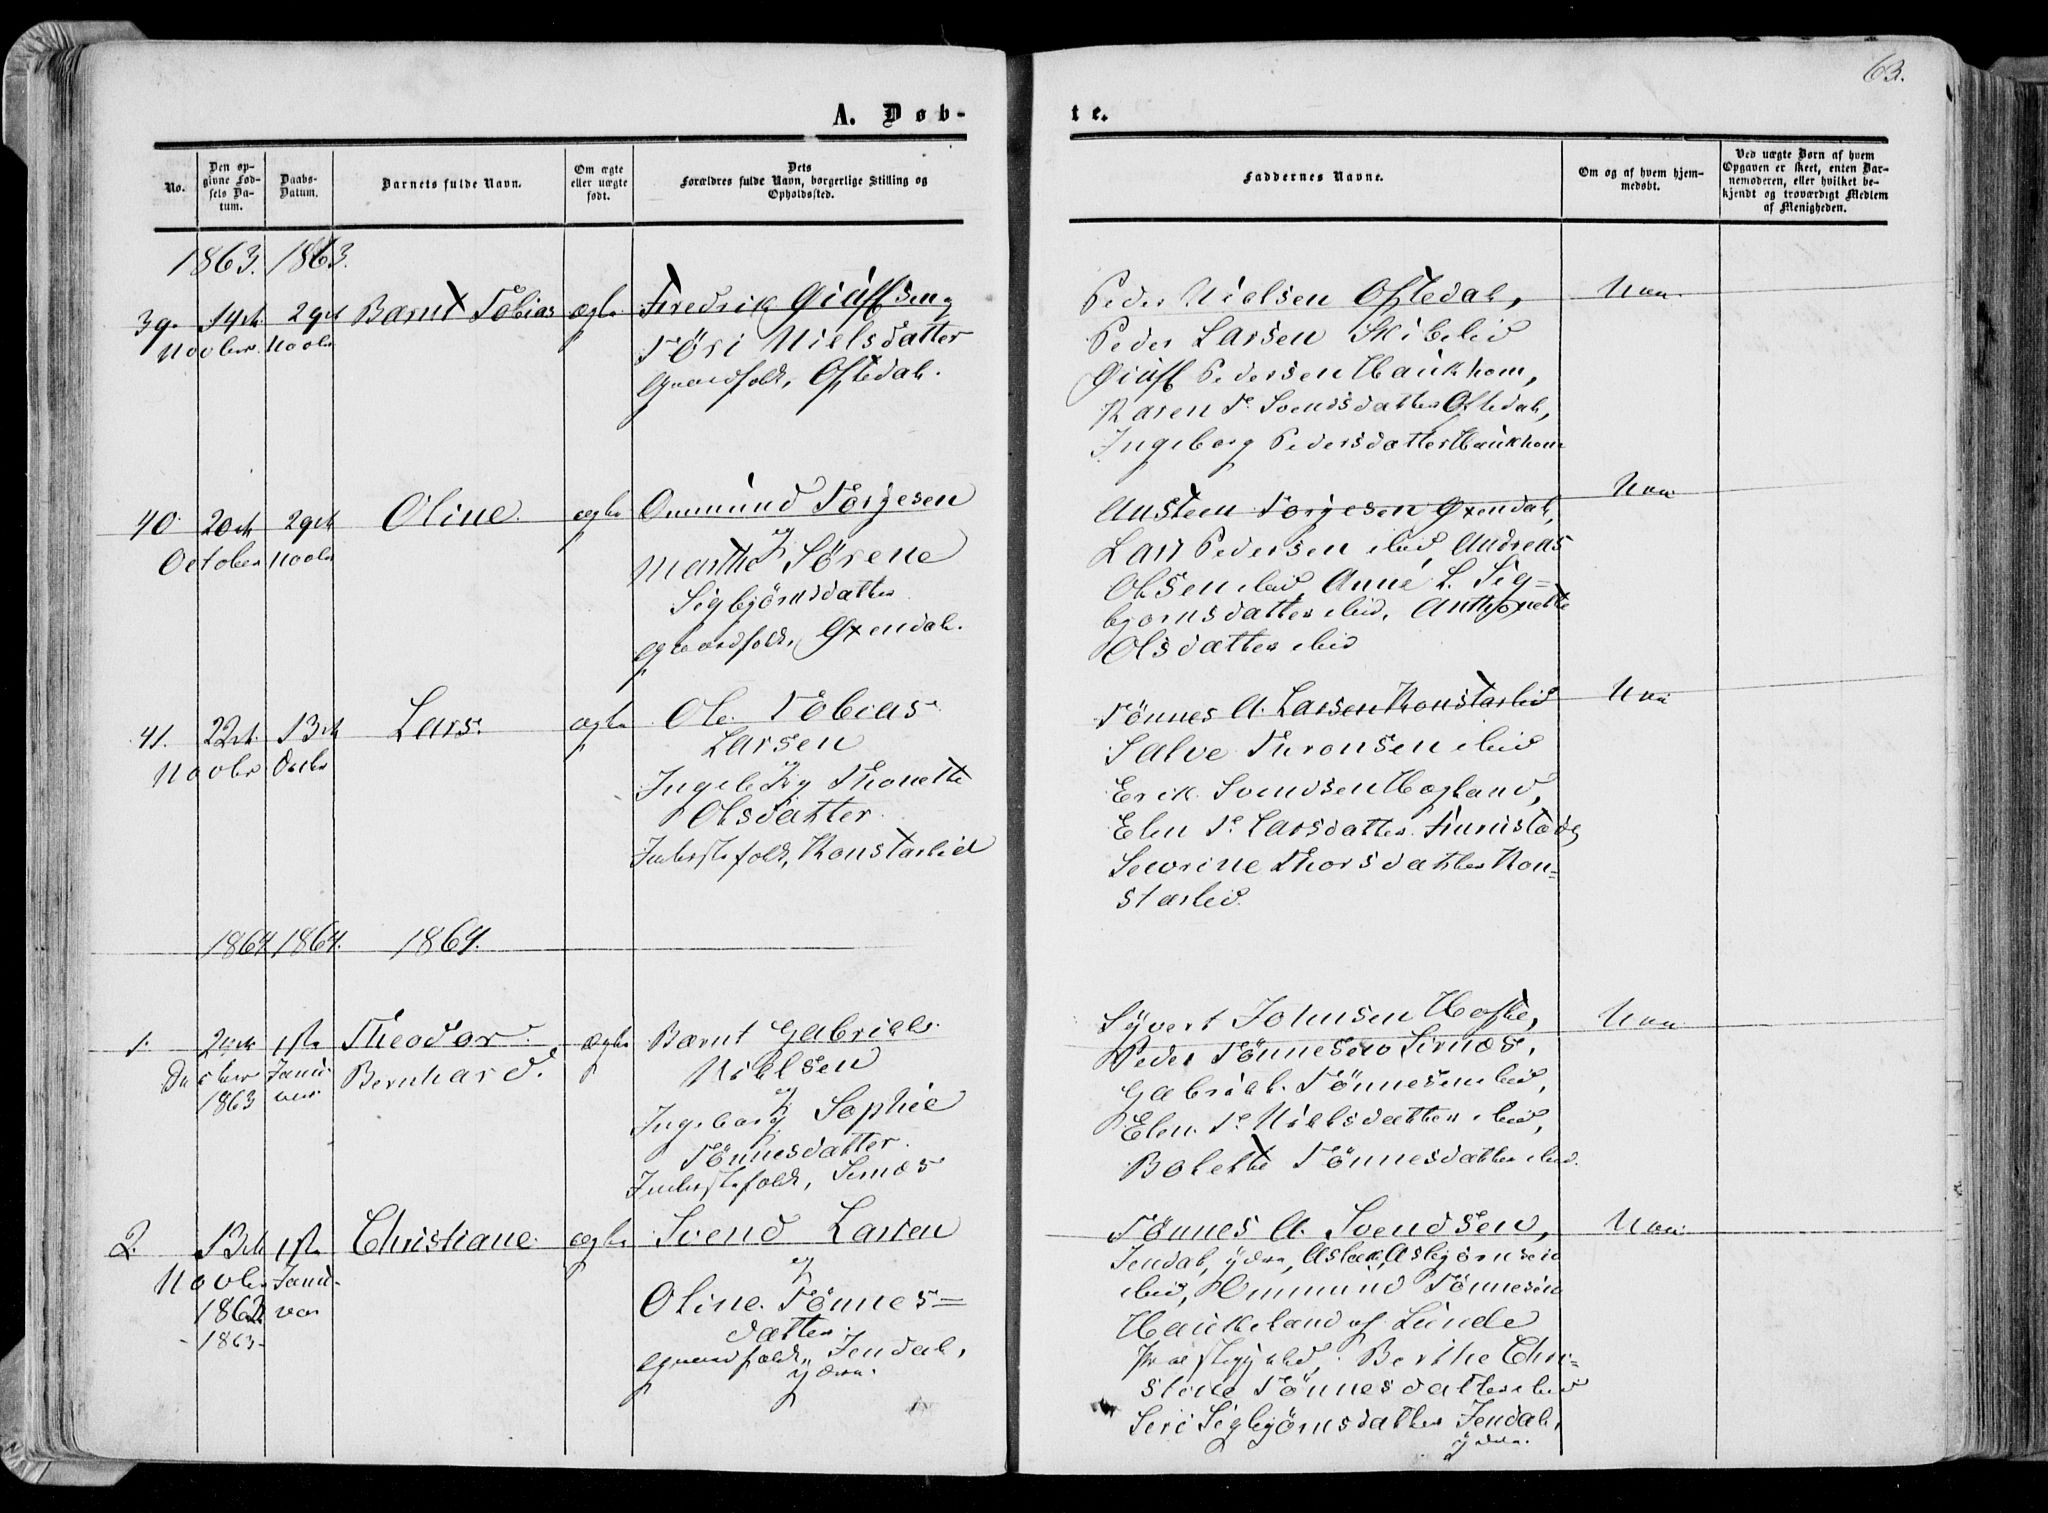 63.
A. Døb-
te.
No.
Den op-
givne Fød-
sels Da-
tum.
Daabs-
Datum.
Barnets fulde Navn.
Om ægte
eller uægte
født.
Dets
Forældres fulde Navn, borgerlige Stilling og
Opholdssted.
Faddernes Navne.
Om og af hvem hjem-
medøbt.
Ved uægte Børn af hvem
Opgaven er skeet, enten Bar-
nemoderen, eller hvilket be-
kjendt og troværdigt Medlem
af Menigheden.
1863. 1863.
39. 14de 29de Bernt Tobias ægte Fredrik
Novbr. Novbr
Töri Nielsdatter
Gaardfolk, Oftedal.
Peder Nielsen Oftedal,
Peder Larsen Skibelid
Pedersen Haukhom,
Karen T. Svendsdatter Oftedal,
Ingeborg Pedersdatter Haukhom
40. 20de 29de Oline. ægte Ommund Torjesen
October Novbr
og
Martha Sörene
Sigbjörnsdatter
Gaardfolk, Oxendal.
Austeen Torjesen Oxendal,
Lars Pedersen ibid, Andreas
Olsen ibid, Anne L. Sig=
bjornsdatter ibid, Anthonette
Olsdatter ibid
41. 22de 13de Lars. ægte Ole Tobias
Novbr Decbr
Larsen
og
Ingeborg Thonette
Olsdatter.
Inderstefolk, Konstaslid
Tönnes A. Larsen Konstaslid
Salve Turonsen ibid
Erik Svendsen Hogland,
Elen T. Larsdatter
Sevrine Thorsdatter Kon=
staslid.
1864. 1864. 1864.
1. 1ste Theodor ægte Bernt Gabriel
Decbr Janu-
1863 uar
Bernhard.
Nielsen
og
Ingeborg Sophie
Tönnesdatter.
Inderstefolk, Sirnes
Syvert Johnsen
Peder Tönnesen Sirnes,
Gabriel Tönnesen ibid,
Elen T. Nielsdatter ibid,
Bolette Tönnesdatter ibid.
2. 13de 1ste Christiane. ægte Svend Larsen
Novbr Janu-
1862 uar
- 1863 -
og
Oline Tönnes=
datter.
Gaardfolk, Jendal,
ydre.
Tönnes A. Svendsen,
Jendal, ydre, Aslak Asbjörnsen
ibid, Ommund Tönnesen
Haukeland af Lunde
Præstegjeld, Berthe Chri=
stine Tönnesdatter ibid
Seri Sigbjörnsdatter Jendal,
ydre.